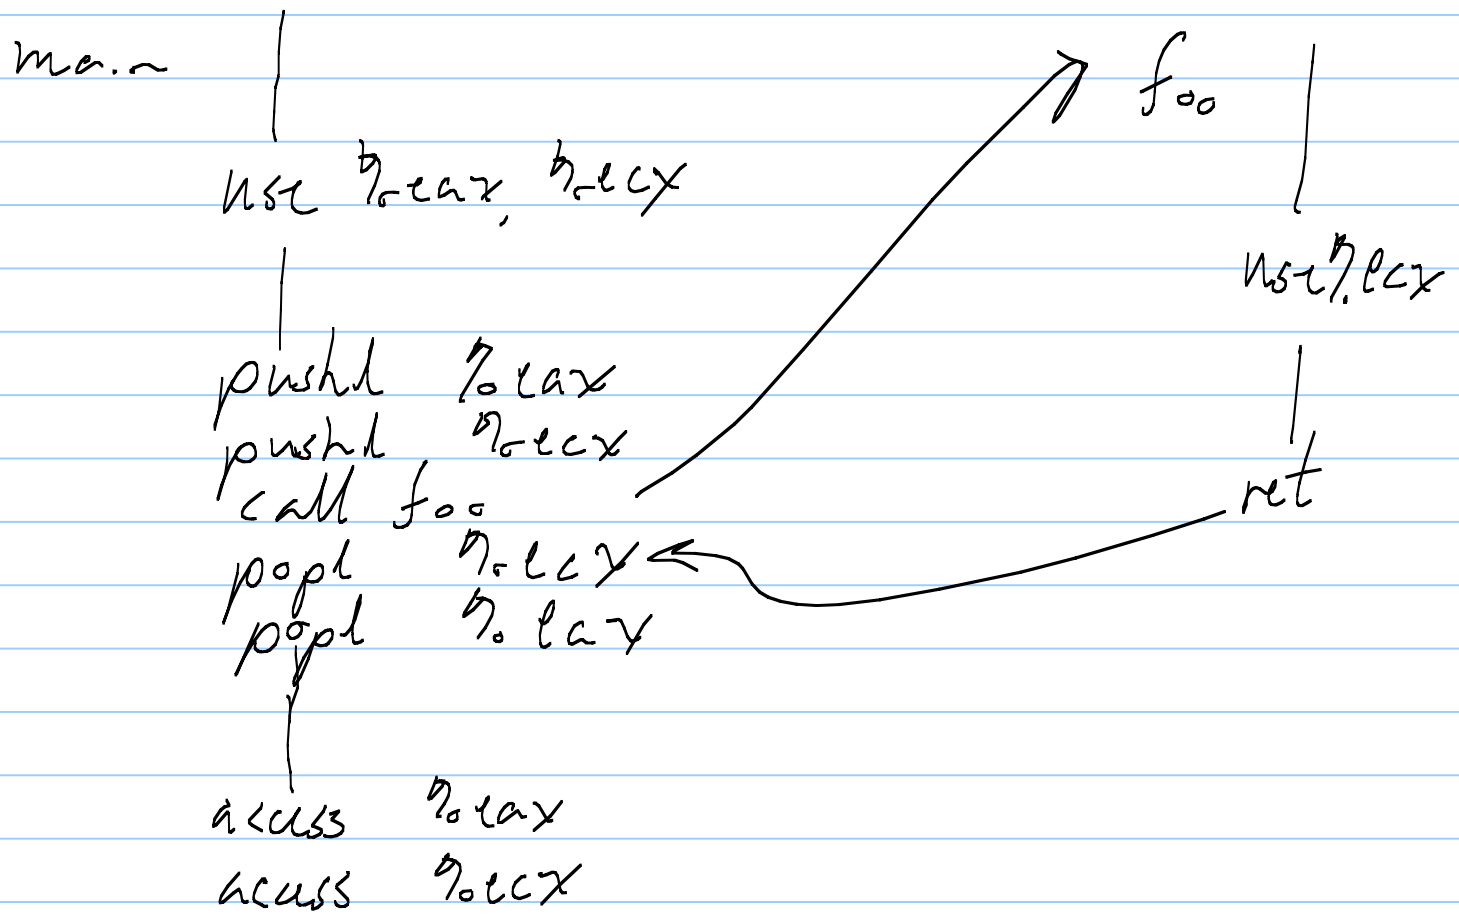 main
use %eax, %ecx
pushl %eax
pushl %ecx
call foo
popl %ecx
popl %eax
access %eax
access %ecx
foo
use %ecx
ret